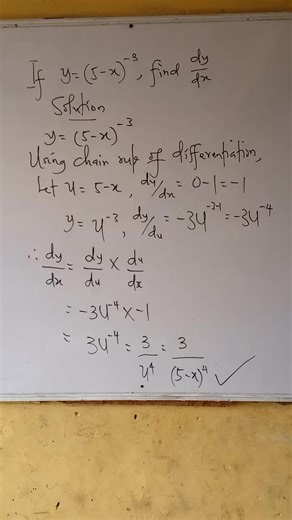 If y = (5-x)⁻³, find dy/dx
Solution
y = (5-x)⁻³
Using chain rule of differentiation,
Let u = 5-x, du/dx = 0-1 = -1
y = u⁻³, dy/du = -3u⁻³⁻¹ = -3u⁻⁴
∴ dy/dx = dy/du × du/dx
= -3u⁻⁴ × -1
= 3u⁻⁴ = 3/u⁴ = 3/(5-x)⁴ ✓